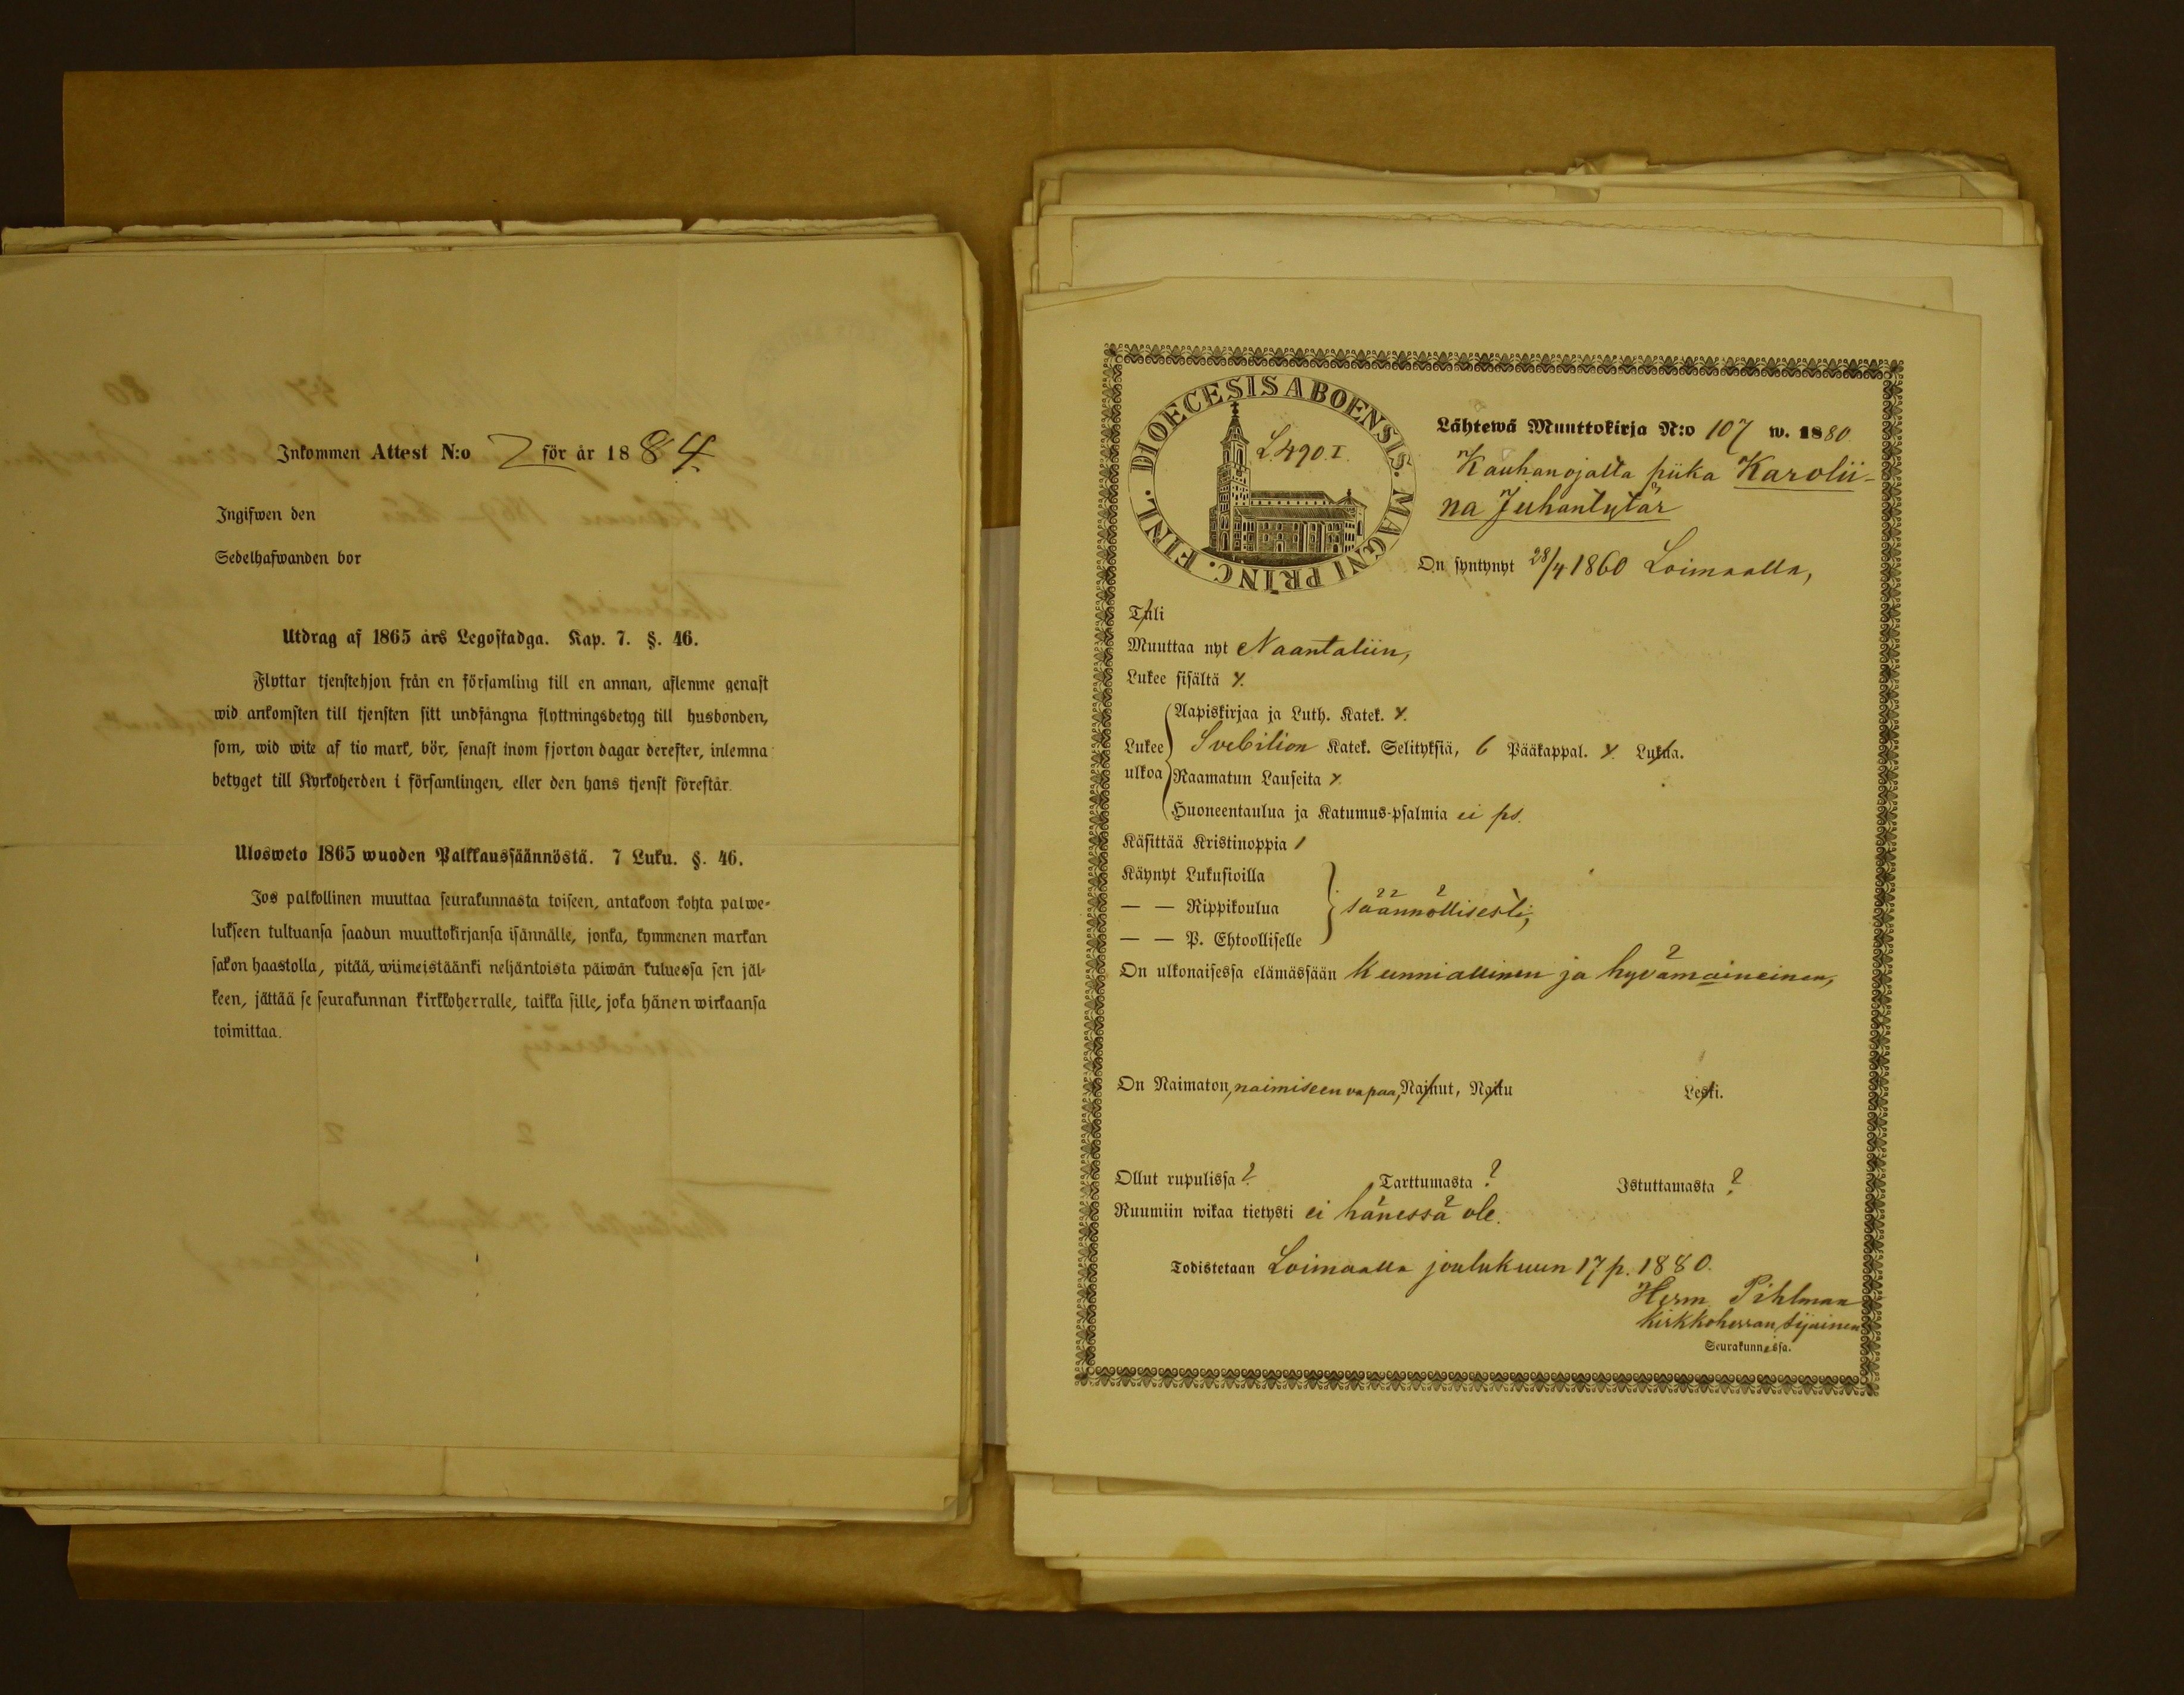 Inkommen Attest N:o 2 för år 1884.
Ingifwen den
Sedelhafwanden bor
Utdrag af 1865 års Legostadga. Kap. 7. §. 46.
Flyttar tjenstehjon från en församling till en annan, aflemne genast
wid ankomsten till tjensten sitt undfångna flyttningsbetyg till husbonden,
som, wid wite af tio mark, bör, senast inom fjorton dagar derefter, inlemna
betyget till Kyrkoherden i församlingen, eller den hans tjenst förestår.
Ulosweto 1865 wuoden Palkkaussäännöstä. 7 Luku. §. 46.
Jos palkollinen muuttaa seurakunnasta toiseen, antakoon kohta palwe-
lukseen tultuansa saadun muuttokirjansa isännälle, jonka, kymmenen markan
sakon haastolla, pitää, wiimeistäänki neljäntoista päiwän kuluessa sen jäl-
keen, jättää se seurakunnan kirkkoherralle, taikka sille, joka hänen wirkaansa
toimittaa.
DIOECESIS ABOENSIS. MAGNI PRINC. FINL.
L.490.I.
Lähtewä Muuttokirja N:o 107 w. 1880
Kauhanojalta piika Karolii-
na Juhantytär
On syntynyt 28/4 1860 Loimaalla,
Tuli
Muuttaa nyt Naantaliin,
Lukee sisältä x.
Lukee ulkoa
Aapiskirjaa ja Luth. Katek. x.
Svebilion Katek. Selityksiä, 6 Pääkappal. x. Lukua.
Raamatun Lauseita x.
Huoneentaulua ja Katumus-psalmia ei ps.
Käsittää Kristinoppia 1
Käynyt Lukusioilla
— — Rippikoulua säännöllisesti,
— — P. Ehtoolliselle
On ulkonaisessa elämässään kunniallinen ja hyvämaineinen,
On Naimaton, naimiseen vapaa, Nainut, Naitu Leski.
Ollut rupulissa ? Tarttumasta ? Istuttamasta ?
Ruumiin wikaa tietysti ei hänessä ole.
Todistetaan Loimaalla joulukuun 17 p. 1880.
Herm. Pihlman
kirkkoherran sijainen
Seurakunnassa.